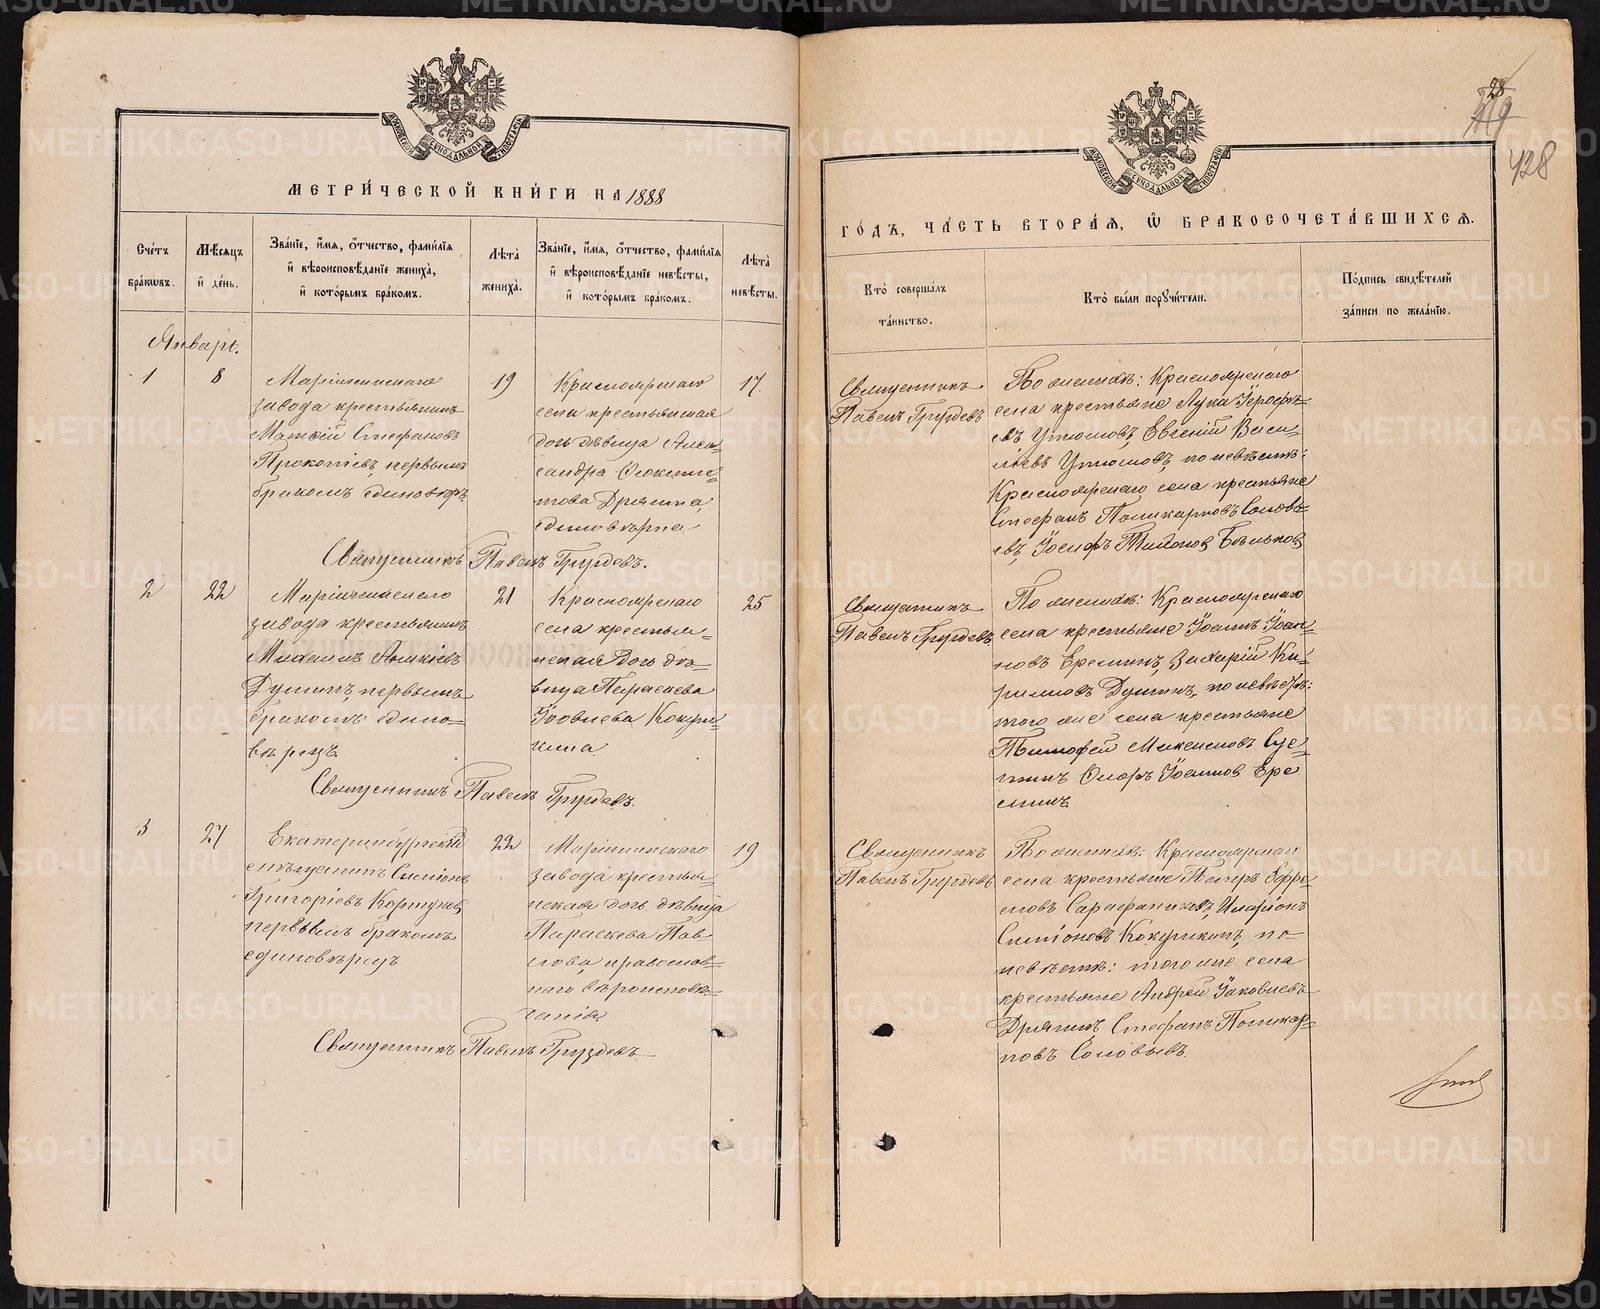 МЕТРИ́ЧЕСКОЙ КНИ́ГИ НА 1888
Сче́тъ бра́кωвъ.
Мѣ́сяцъ и҆ де́нь.
Зва́нїе, и҆́мя, ѻ҆́тчество, фами́лїя и҆ вѣроисповѣ́данїе жениха̀, и҆ кото́рымъ бра́комъ.
Лѣ́та жениха̀.
Зва́нїе, и҆́мя, ѻ҆́тчество, фами́лїя и҆ вѣроисповѣ́данїе невѣ́сты, и҆ кото́рымъ бра́комъ.
Лѣ́та невѣ́сты.
Январь.
1
8
Маріинскаго
завода крестьянинъ
Матѳій Стефановъ
Прокопіевъ первымъ
бракомъ единовѣръ
19
Красноярскаго
села крестьянская
дочь дѣвица Алек-
сандра
това Дрягина
единовѣрка
17.
Священникъ Павелъ Груздевъ.
2
22
Маріинскаго
завода крестьянинъ
Михаилъ
первымъ
бракомъ едино-
вѣрецъ
21
Красноярскаго
села крестьян-
ская дочь дѣ-
вица Параскева
Іовлева Кокши-
кина
25
Священникъ Павелъ Груздевъ.
3
27
Екатеринбургскій
мѣщанинъ Симеонъ
Григоріевъ Коршуновъ
первымъ бракомъ
единовѣрецъ
22
Маріинскаго
завода крестьян-
ская дочь дѣвица
Параскева Пав-
лова, православ-
наго вѣроисповѣ-
данія.
19
Священникъ Павелъ Груздевъ
428
ГО́ДЪ, ЧА́СТЬ ВТОРА́Я, Ѽ БРАКОСОЧЕТА́ВШИХСЯ.
Кто̀ соверша́лъ та́инство.
Кто̀ бы́ли порꙋчи́тели.
По́дпись свидѣ́телей за́писи по жела́нїю.
Священникъ
Павелъ Груздевъ
По женихѣ: Красноярскаго
села крестьяне Лука Іероѳѣ-
евъ Утюмовъ, Евгеній Васи-
ліевъ Утюмовъ, по невѣстѣ:
Красноярскаго села крестьяне
Стефанъ Поликарповъ Соловь-
евъ, Іосифъ Бѣльковъ
Священникъ
Павелъ Груздевъ
По женихѣ: Красноярскаго
села крестьяне Іоаннъ Іоан-
новъ Еремины, Захарій Ки-
рилловъ по невѣстѣ:
того же села крестьяне
Тимофей Максимовъ
Іоанновъ Ере
минъ
Священникъ
Павелъ Груздевъ
По женихѣ: Красноярскаго
села крестьяне Петръ Ефре-
мовъ Сарафанниковъ, Иларіонъ
Симеоновъ Кокшикинъ, по-
невѣстѣ: того же села
крестьяне Андрей Іаковлевъ
Дрягинъ, Стефанъ Поликар-
повъ Соловьевъ.